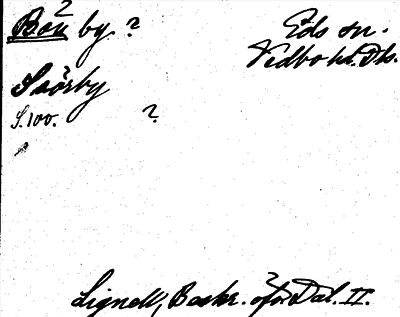 Bön by ?
Eds sn.
Vedbo hd. Dls.
Snörby
S. 100. ?
Lignell, Beskr. öfver Dal. II.